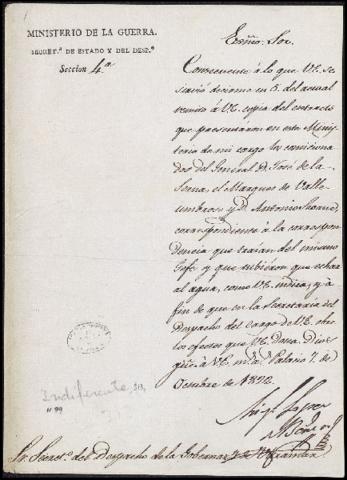 MINISTERIO DE LA GUERRA.
SECRET.ª DE ESTADO Y DEL DESP.º
Seccion 4.ª
Exmo. Sor.
Consecuente á lo que V.E. se
sirvió decirme en 5. del actual
remito á V.E. copia del extracto
que presentaron en este Minis-
terio de mi cargo los comisiona-
dos del General D. José de la
Serna, el Marques de Valle-
umbroso y D. Antonio Seoane,
correspondiente á la correspon-
dencia que traian del mismo
Gefe y que tubieron que echar
al agua, como V.E. indica, y á
fin de que en la Secretaria del
Despacho del cargo de V.E. obre
los efectos que V.E. desea. Dios
gũe á V.E. m.s a.s Palacio 7. de
Octubre de 1822.
Mig.l Lopez
de Baños
Indiferente, 313,
nº 99
Sr. Secret.º del Despacho de la Gobern.on de Ultramar